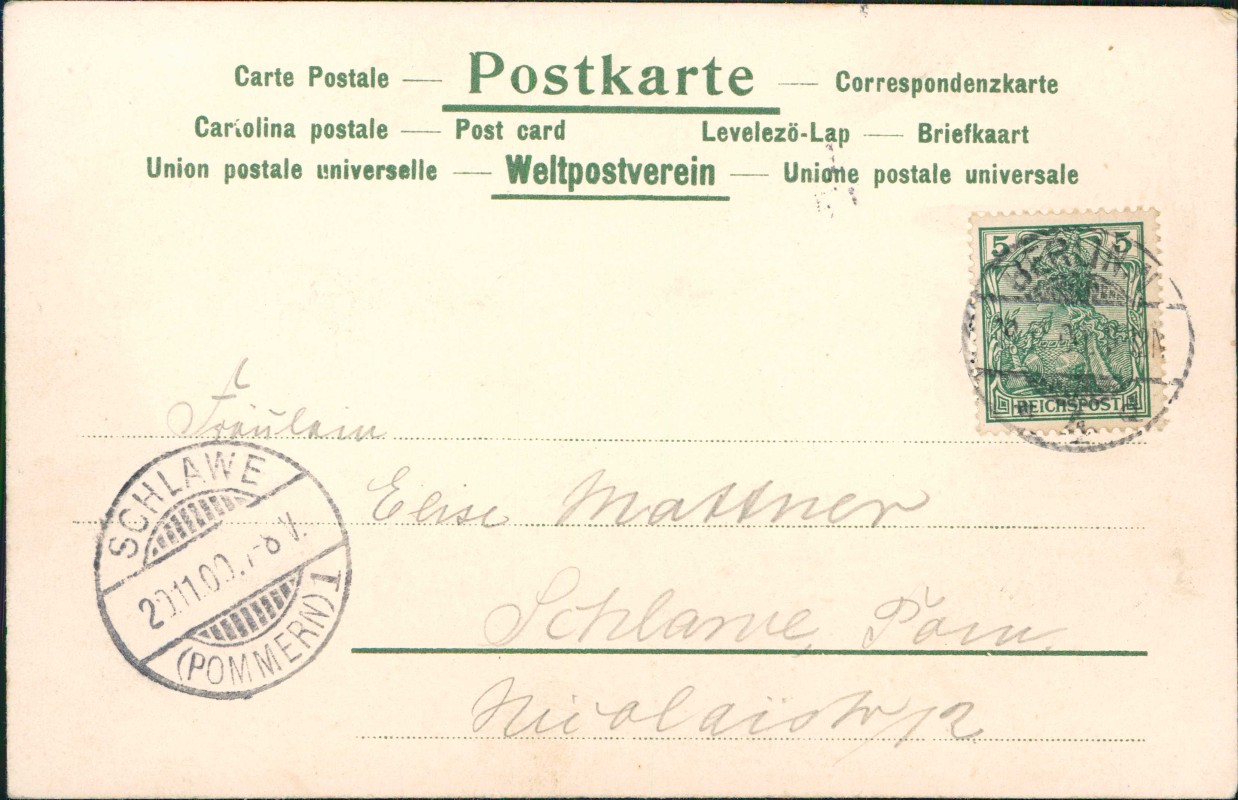 Carte Postale — Postkarte — Correspondenzkarte
Cartolina postale — Post card Levelezö-Lap — Briefkaart
Union postale universelle — Weltpostverein — Unione postale universale
5 5
BERLIN.N.
REICHSPOST
Fräulein
Elise Mattner
Schlawe, Pom.
Nicolaistr 12
SCHLAWE
20.11.00.7-8 V.
(POMMERN) 1